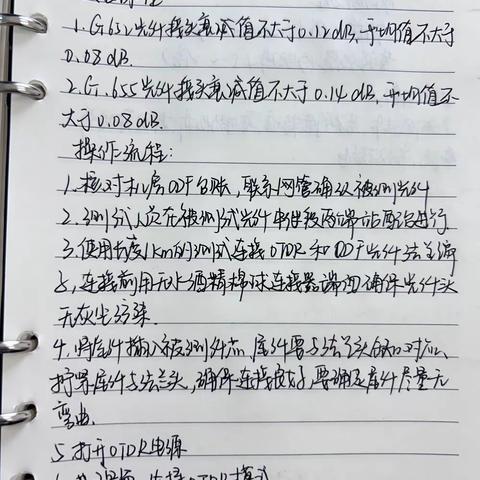 1. G.652光纤接头衰减值不大于0.12dB,平均值不大于
0.08dB.
2. G.655光纤接头衰减值不大于0.14dB,平均值不
大于0.08dB.
操作流程:
1.核对机房ODF台账,联系网管确认被测光纤
2.测试人员在被测试光纤中继段两端站配合进行
3.使用长度1km的测试连接OTDR和ODF光纤法兰端
子,连接前用无水酒精棉球连接器端面确保光纤头
无灰尘污染.
4.将尾纤插入被测纤芯,尾纤要与法兰头的对应、
拧紧尾纤与法兰头,确保连接良好,要确保尾纤尽量无
弯曲.
5.打开OTDR电源
OTDR模式